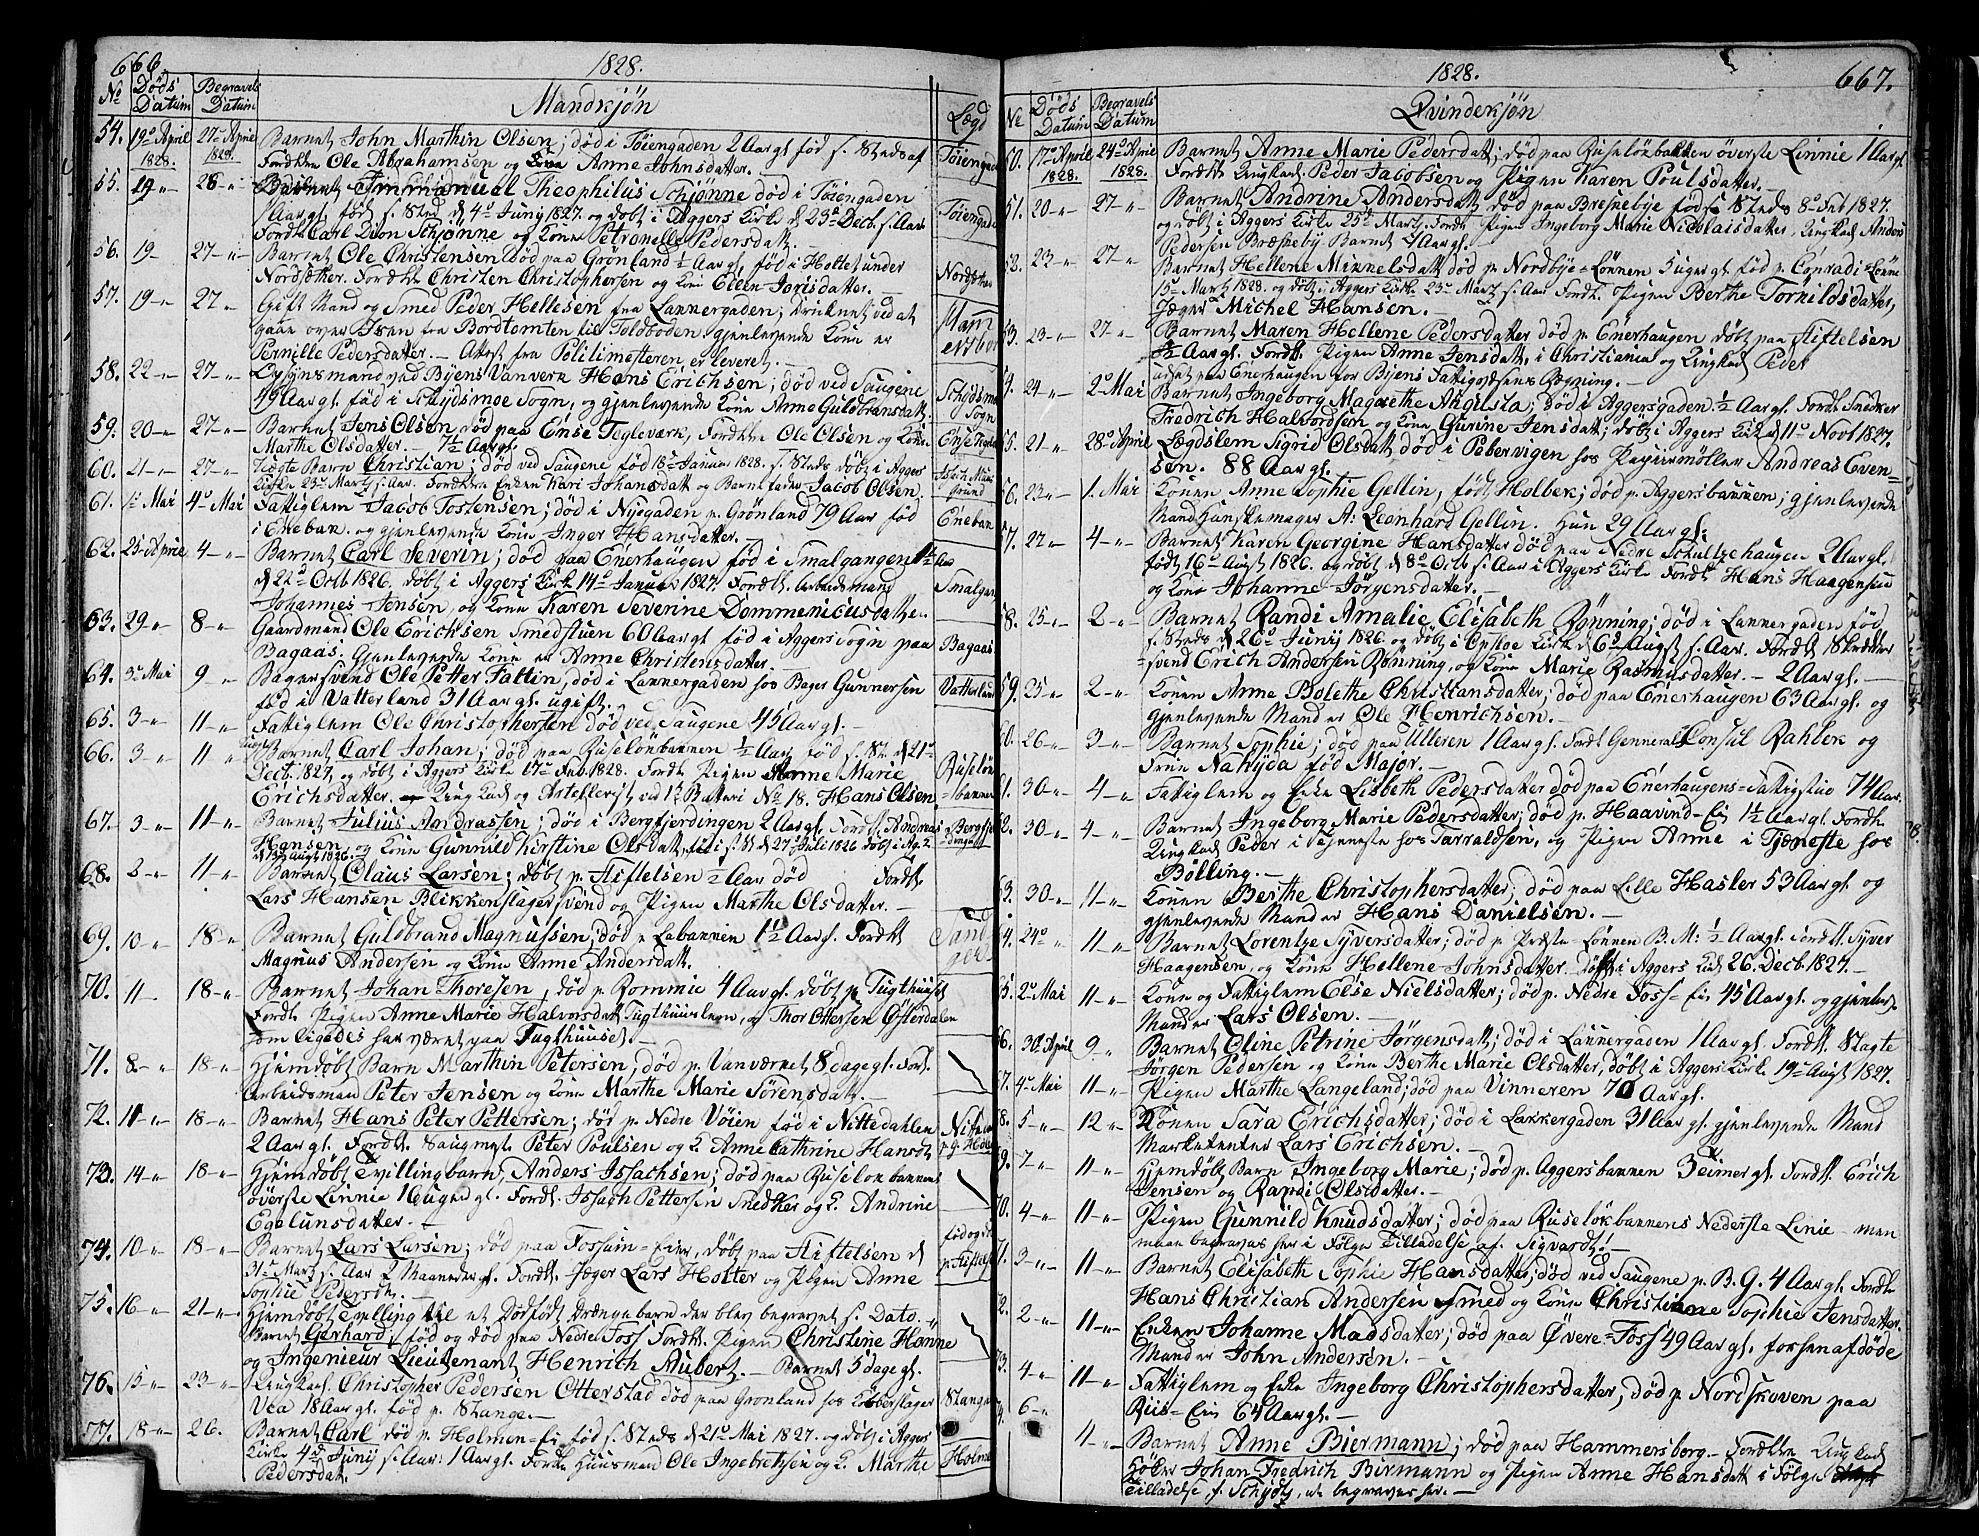 666.
1828.
No Døds Datum Begravels Datum Mandkjøn Lægd
54. 19o April 1828. 27o April 1828. Barnet John Marthin Olsen; død i Tøiengaden 2 Aar gl. fød s. Steds af
Foræld Ole Abrahamsen og Kone Anne Johnsdatter. Tøiengad
55. 19 " 28 " Barnet Immanuel Theophilus Schjønne død i Tøiengaden
1 Aar gl. fød s. Sted d 4o Junij 1827. og døbt i Aggers Kirke d 23o Decb. s. Aar. Tøiengad
Foræld Carl Dion Schjønne og Kone Petronelle Pedersdatt.
56. 19 27 " Barnet Ole Christensen død paa Grønland ½ Aar gl. fød i Holtet under
Nordsether. Forældre Christen Christophersen og Kone Eleen Jorisdatter. Nordstr
57. 19 " 27 " Gift Mand og Smed Peder Hellesen fra Lannergaden; druknet ved at
gaae over Isen fra Bordtomten til Toldboden gjenlevende Kone er
Pernille Pedersdatter. Attest fra Politimesteren er leveret.
58. 22 " 27 " Opsynsmand ved Byens Vanverk Hans Erichsen; død ved Saugene
49 Aar gl. fød i Schydsmoe Sogn, og gjenlevende Kone Anne Guldbransdatt. Schydsmoe Sogn
59. 20 " 27 " Barnet Jens Olsen død paa Ense Tegleværk, Forældre Ole Olsen og Kone
Marthe Olsdatter. 7½ Aar gl.
60. 21 " 27 " Uægte Barn Christian; død ved Saugene fød 18o Januar 1828. s. Steds døbt i Aggers
Kirke 23o Martz s. Aar. Forældre Enken Kari Johansdatt og Barnefader Jacob Olsen.
61. 1o Mai 4o Mai Fattiglem Jacob Tostensen; død i Nyegaden p. Grønland 79 Aar fød
i Eneban. og gjenlevende Kone Inger Hansdatter. Eneban
62. 25 April 4 " Barnet Carl Severin; død paa Enerhaugen fød i Smalgangen
d 22o Octb 1826. døbt i Aggers Kirke 14o Januar 1827. Forældre Arbeidsmand Smalgan
Johannes Jensen, og Kone Karen Severine Dommenicusdatter.
63. 29 " 8 " Gaardmand Ole Erichsen Smedstuen 60 Aar gl. fød i Aggers Sogn paa
Bagaas. Gjenlevende Kone er Anne Christensdatter. Bagaas
64. 3o Mai 9 " Bagersvend Ole Petter Fattin, død i Lannergaden hos Bager Gunnersen
fød i Vatterland 31 Aar gl. ugift. Vatterland
65. 3 " 11 " Fattiglem Ole Christophersen død ved Saugene 45 Aar gl.
66. 3 " 11 " Barnet Carl Johan; død paa Ruseløkbannen ½ Aar, fød s. St. d 21o
Decb. 1827, og døbt i Aggers Kirke 17o Feb. 1828. Forældre Pigen Anne Marie
Erichsdatter. og Ungkarl og Artellerist ved 1te Batteri No 18. Hans Olsen. Ruseløk bannen
67. 3 " 11 " Barnet Julius Andreassen; død i Bergfjerdingen 2 Aar gl. Forældre Andreas
Hansen, og Kone Gunnild Kirstine Olsdatt, fød s. St d 27o Juli 1826 døbt i Ag. K.
68. 2 " 11 " Barnet Claus Larsen; døbt p. Stiftelsen Aar død Foræld
Lars Hansen Blikkenslagersvend og Pigen Marthe Olsdatter.
69. 10 " 18 " Barnet Guldbrand Magnussen, død p Labannen 1½ Aar gl. Foræld
Magnus Andersen og Kone Anne Andersdatt.
70. 11 18 " Barnet Johan Thoresen, død p. Rommie 4 Aar gl. døbt p. Tugthuuset
Foræld Pigen Anne Marie Halvorsdatt Tugthuuslem, og Thor Ottersen Østerdalen
som ligedes har været paa Tugthuuset.
71. 8 " 18 " Hjemdøbt Barn Marthin Petersen, død p. Vanværnet 8 dage gl. Foræld
Arbeidsman Peter Jensen og Kone Marthe Marie Sørensdatt.
72. 11 " 18 " Barnet Hans Peter Pettersen; død p. Nedre Vøien fød i Nittedahlen
2 Aar gl. Foræld. Saugmest. Peter Poulsen og K. Anne Cathrine Hansdt.
73. 14 " 18 " Hjemdøbt Tvillingbarn, Anders Issachsen; død paa Ruseløkbannens
øverste Linnie 16 uger gl. Foræld. Issach Pettersen Snedker og K. Andrine
Egelunsdatter.
74. 10 " 18 " Barnet Lars Larsen; død paa Fossum-Eier, døbt paa Stiftelsen d
31o Martz s. Aar 2 Maaneder gl. Foræld. Jæger Lars Holter og Pigen Anne
Sophie Pedersdt. fød og døbt p. Stiftels
75. 16 " 21 " Hjemdøbt Tvilling til et Dødfødt Drængebarn der blev begravet s. Dato.
Barnet Gerhard, fød og død paa Nedre Foss Foræld. Pigen Christine Hanne
og Ingenieur Lieutenant Henrich Aubert. Barnet 5 dage gl.
76. 15 " 23 " Ungkarl Christopher Pedersen Otterstad død paa Grønland hos Kobberslager
Vea 18 Aar gl. fød p. Stange. Stange
77. 18 " 26. Barnet Carl død p. Holmen-Ei fød s. Steds d 21o Mai 1827. og døbt i Aggers
Kirke 4de Junij s. Aar: 1 Aar gl. Foræld Huusmand Ole Ingebretsen og K. Marthe Holme
Pedersdatt.
1828.
667.
No Døds Datum Begravels Datum Qvindekjøn
50. 17o April 1828. 24o April 1828. Barnet Anne Marie Pedersdatt; død paa Ruseløkbakken øverste Linnie 1 Aar gl.
Forældre Ungkarl Peder Jacobsen og Pigen Karen Poulsdatter.
51. 20 " 27 " Barnet Andrine Andersdatt, død paa Breskebye fød s. Steds 8o Feb 1827.
og døbt i Aggers Kirke 25o Martz. Foræld Pigen Ingeborg Marie Nicolaisdatter, Ungkarl Anders
Pedersen Bræskebÿ Barnet 1 Aar gl.
52. 23 " 27 " Barnet Hellene Minnelsdatt død p. Nordbye-Lønnen 5 uger gl. fød p. Conradi-Lønne
15o Martz 1828. og døbt i Aggers Kirke 23o Martz s. Aar Foræld. Pigen Berthe Tornildsdatter,
Jæger Michel Hansen.
53. 23 " 27 " Barnet Maren Hellene Pedersdatter død p. Enerhaugen døbt paa Stiftelsen
½ Aar gl. Foræld. Pigen Anne Jensdatt, i Christiania og Ungkarl Peder
udsat paa Enerhaugen for Byens Fattigvæsens Regning.
54. 24 " 2o Mai Barnet Ingeborg Magrethe Augusta; død i Aggersgaden ½ Aar gl. Foræld Snedker
Fredrich Halvordsen og Kone Gurine Jensdatt; døbt i Aggers Kirke d 11o Novb 1827.
55. 21 " 28o April Lægdslem Sigrid Olsdatt, død i Pebervigen hos Papiirmøller Andreas Even-
sen. 88 Aar gl.
56. 23 " 1. Mai Konen Anne Sophie Gellin, født Holbek; død p. Aggersbannen; gjenlevende
Mand Handskemager A: Leonhard Gellin. Hun 29 Aar gl:
57. 22 " 4 " Barnet Karen Georgine Hansdatter død paa Nedre Schultzehaugen 2 Aar gl.
født 16o Augst 1826. og døbt d 8o Octb s. Aar i Aggers Kirke Foræld Hans Haagensen
og Kone Johanne Jørgensdatter.
58. 25 " 2 " Barnet Randi Amalie Elisabeth Rønning; død i Lannergaden fød
s. Steds d 26o Junij 1826. og døbt i Opsloe Kirke d 6o Augst s. Aar. Foræld Skrædder
svend Erich Andersen Rønning, og Kone Marie Rasmusdatter. 2 Aar gl.
59. 25 " 2 " Konen Anne Bolethe Christiansdatter; død paa Enerhaugen 63 Aar gl. og
gjenlevende Mand er Ole Henrichsen.
60. 26 " 3 " Barnet Sophie; død paa Ulleren 1 Aar gl. Foræld General Consul Rahbek og
Frue Nahÿda fød Major.
61. 30 " 4 " Fattiglem og Enke Lisbeth Pedersdatter død paa Enerhaugens-Fattigstue 74 Aar.
62. 30 " 4 " Barnet Ingeborg Marie Pedersdatter; død p. Haavind-Ei 1½ Aar gl. Foræld
Ungkarl Peder i Tjeneste hos Tarraldsen, og Pigen Anne i Tjæneste hos
Bølling.
63. 30 " 11 " Konen Berthe Christophersdatter; død paa Lille Hasler 53 Aar gl. og
gjenlevende Mand er Hans Danielsen.
64. 24o " 11 " Barnet Lorentze Syversdatter; død p. Præste-Lønnen B. M: ½ Aar gl. Foræld. Syver
Haagensen, og Kone Hellene Johnsdatter. Døbt i Aggers Kirk 26. Decb. 1827.
65. 2o Mai 11 " Kone og Fattiglem Else Nielsdatter; død p. Nedre Foss-Ei 45 Aar gl. og gjenlev.
Mand er Lars Olsen.
66. 30 April 9 " Barnet Oline Petrine Jørgensdatt; død i Lannergaden 1 Aar gl. Foræld. Slagte
Jørgen Pedersen og Kone Berthe Marie Olsdatter, døbt i Aggers Kirk 19o Augst 1827.
67. 4o Mai 11 " Pigen Marthe Langeland; død paa Vinneren 70 Aar gl.
68. 5 " 12 " Konen Sara Erichsdatter; død i Lakkergaden 31 Aar gl. gjenlevende Mand
Marketenter Lars Erichsen.
69. 7 " 11 " Hjemdøbt Barn Ingeborg Marie; død p. Aggersbannen 3 Timer gl. Foræld. Erich
Jensen og Randi Olsdatter.
70. 4 " 11 " Pigen Gunnild Knudsdatter; død paa Ruseløkbannens Nederste Linie – men
maae begraves her i Følge Tilladelse af Sigvardt!
71. 3 " 11 " Barnet Elisabeth Sophie Hansdatter; død ved Saugene p. B. G. 4 Aar gl. Foræld
Hans Christian Andersen Smed og Kone Christiane Sophie Jensdatter.
72. 2 " 11 " Enken Johanne Madsdatter; død paa Øvere-Foss 49 Aar gl. forhen afdøde
Mand er John Andersen.
73. 4 " 11 " Fattiglem og Enke Ingeborg Christophersdatter; død p. Nordskoven paa
Riis-Ein 64 Aar gl.
74. 6 " 4 " Barnet Anne Biermann; død paa Hammersborg. Foræld Ungkarl
Johan Fredrich Birmann og Pigen Anne Hansdatt i Følge
Tilladelse, f. Schjøtz, at begraves her.